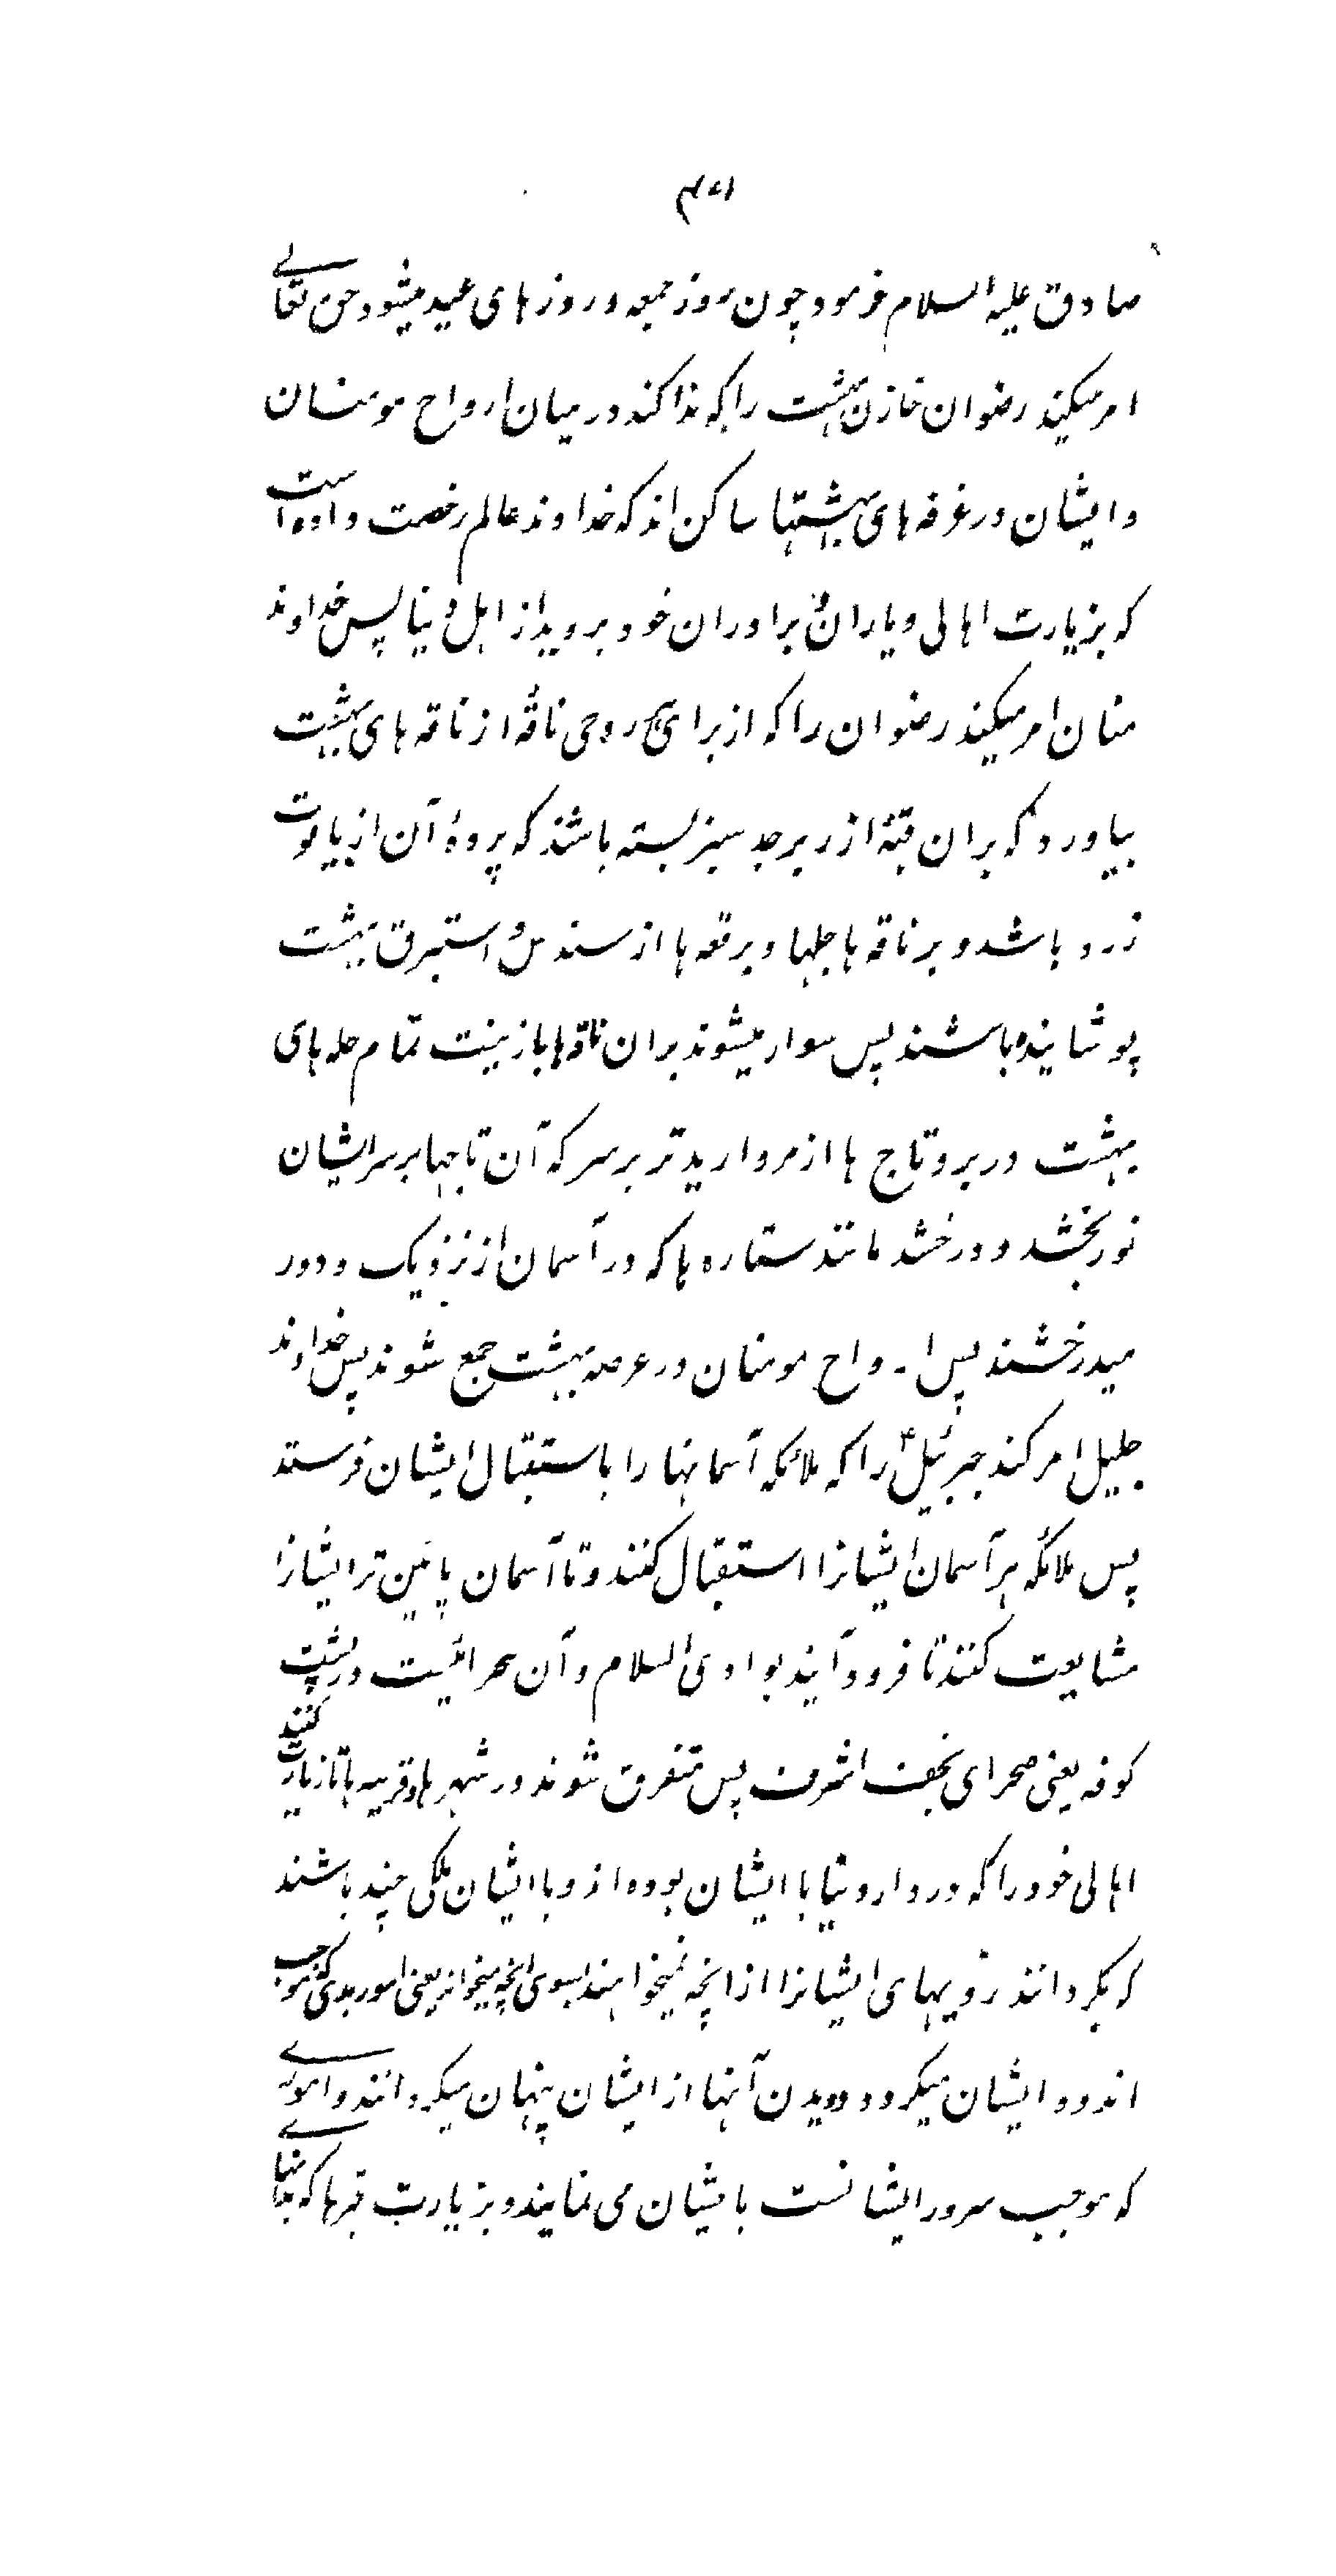 صادق علیه السلام فرمود چون روز جمعه و روزهای عید میشود حق تعالے
امر میکند رضوان خازن بهشت را که ندا کند در میان ارواح مومنان
و ایشان در غرفه های بهشتها ساکن اند که خداوند عالم رخصت داده است
که بزیارت اهالی و یاران و برادران خود بروید از اهل دنیا پس خداوند
منان امر میکند رضوان را که از برای هر روحی ناقهٔ از ناقه های بهشت
بیاورد که بران قبّهٔ از زبرجد سبز بسته باشند که پردهٔ آن از یاقوت
زرد باشد و بر ناقه ها جلها و برقعه ها از سندس و استبرق بهشت
پوشانیده باشند پس سوار میشوند بران ناقه ها با زینت تمام حله های
بهشت در بر و تاج ها از مروارید تر بر سر که آن تاجها بر سر ایشان
نور بخشد و درخشد مانند ستاره ها که در آسمان از نزدیک و دور
میدرخشند پس ارواح مومنان در عرصه بهشت جمع شوند پس خداوند
جلیل امر کند جبرئیل ع را که ملائکه آسمانها را باستقبال ایشان فرستد
پس ملائکه هر آسمان ایشانرا استقبال کنند و تا آسمان پائین تر ایشانرا
مشایعت کنند تا فرود آیند بوادی السلام و آن صحرائیست در پشت
کوفه یعنی صحرای نجف اشرف پس متفرق شوند در شهر ها و قریه ها تا زیارت کنند
اهالی خود را که در دار دنیا با ایشان بوده اند و با ایشان ملکی چند باشند
که بگردانند رویهای ایشانرا از انچه نمیخواهند بسوی انچه میخواهند یعنی امور بدی که موجب
اندوه ایشان میگردد دیدن آنها از ایشان پنهان میگردانند و امورے
که موجب سرور ایشانست بایشان می نمایند و بزیارت قبرها که بدنهاے